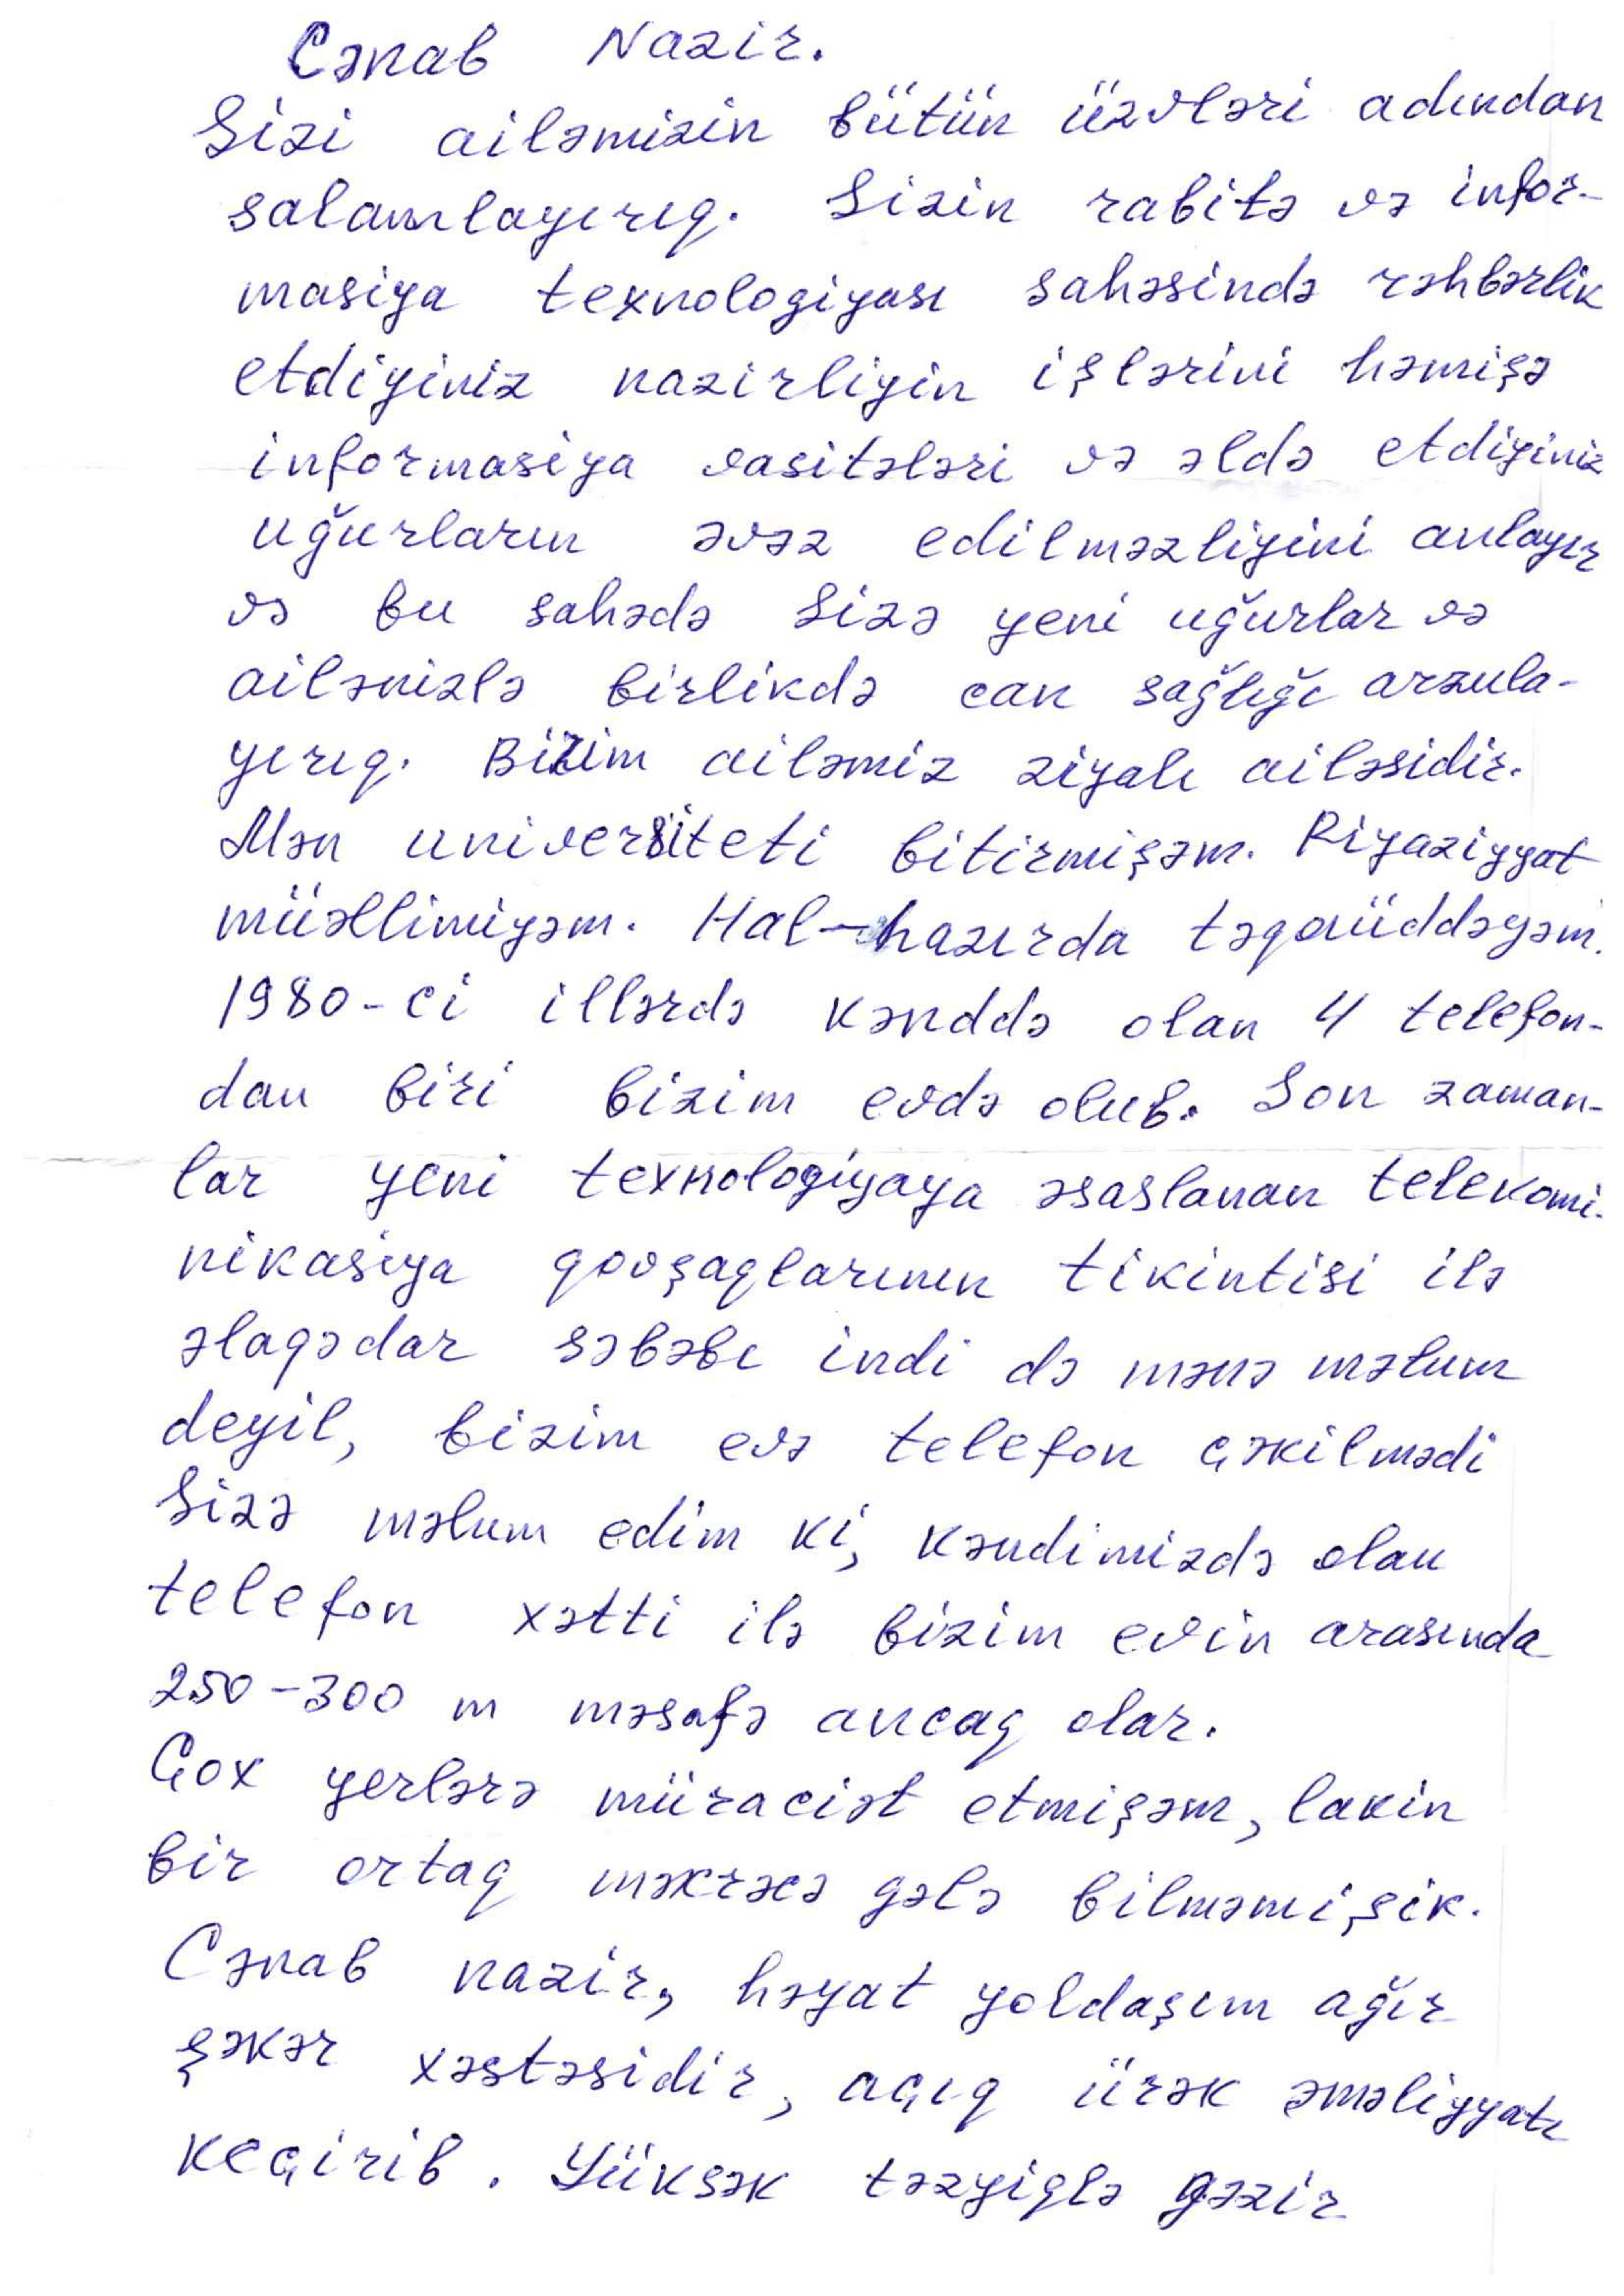 Cənab Nazir.
Sizi ailəmizin bütün üzvləri adından
salamlayırıq. Sizin rabitə və infor-
masiya texnologiyası sahəsində rəhbərlik
etdiyiniz nazirliyin işlərini həmişə
informasiya vasitələri və əldə etdiyiniz
uğurların əvəz edilməzliyini anlayır
və bu sahədə Sizə yeni uğurlar və
ailənizlə birlikdə can sağlığı arzula-
yırıq. Bizim ailəmiz ziyalı ailəsidir.
Mən universiteti bitirmişəm. Riyaziyyat
müəllimiyəm. Hal-hazırda təqaüddəyəm.
1980-ci illərdə kənddə olan 4 telefon-
dan biri bizim evdə olub. Son zaman-
lar yeni texnologiyaya əsaslanan telekomi-
nikasiya qovşaqlarının tikintisi ilə
əlaqədar səbəbı indi də mənə məlum
deyil, bizim evə telefon çəkilmədi
Sizə məlum edim ki, kəndimizdə olan
telefon xətti ilə bizim evin arasında
250-300 m məsafə ancaq olar.
Çox yerlərə müraciət etmişəm, lakin
bir ortaq məxrəcə gələ bilməmişik.
Cənab nazir, həyat yoldaşım ağır
şəkər xəstəsidir, açıq ürək əməliyyatı
keçirib. Yüksək təzyiqlə gəzir